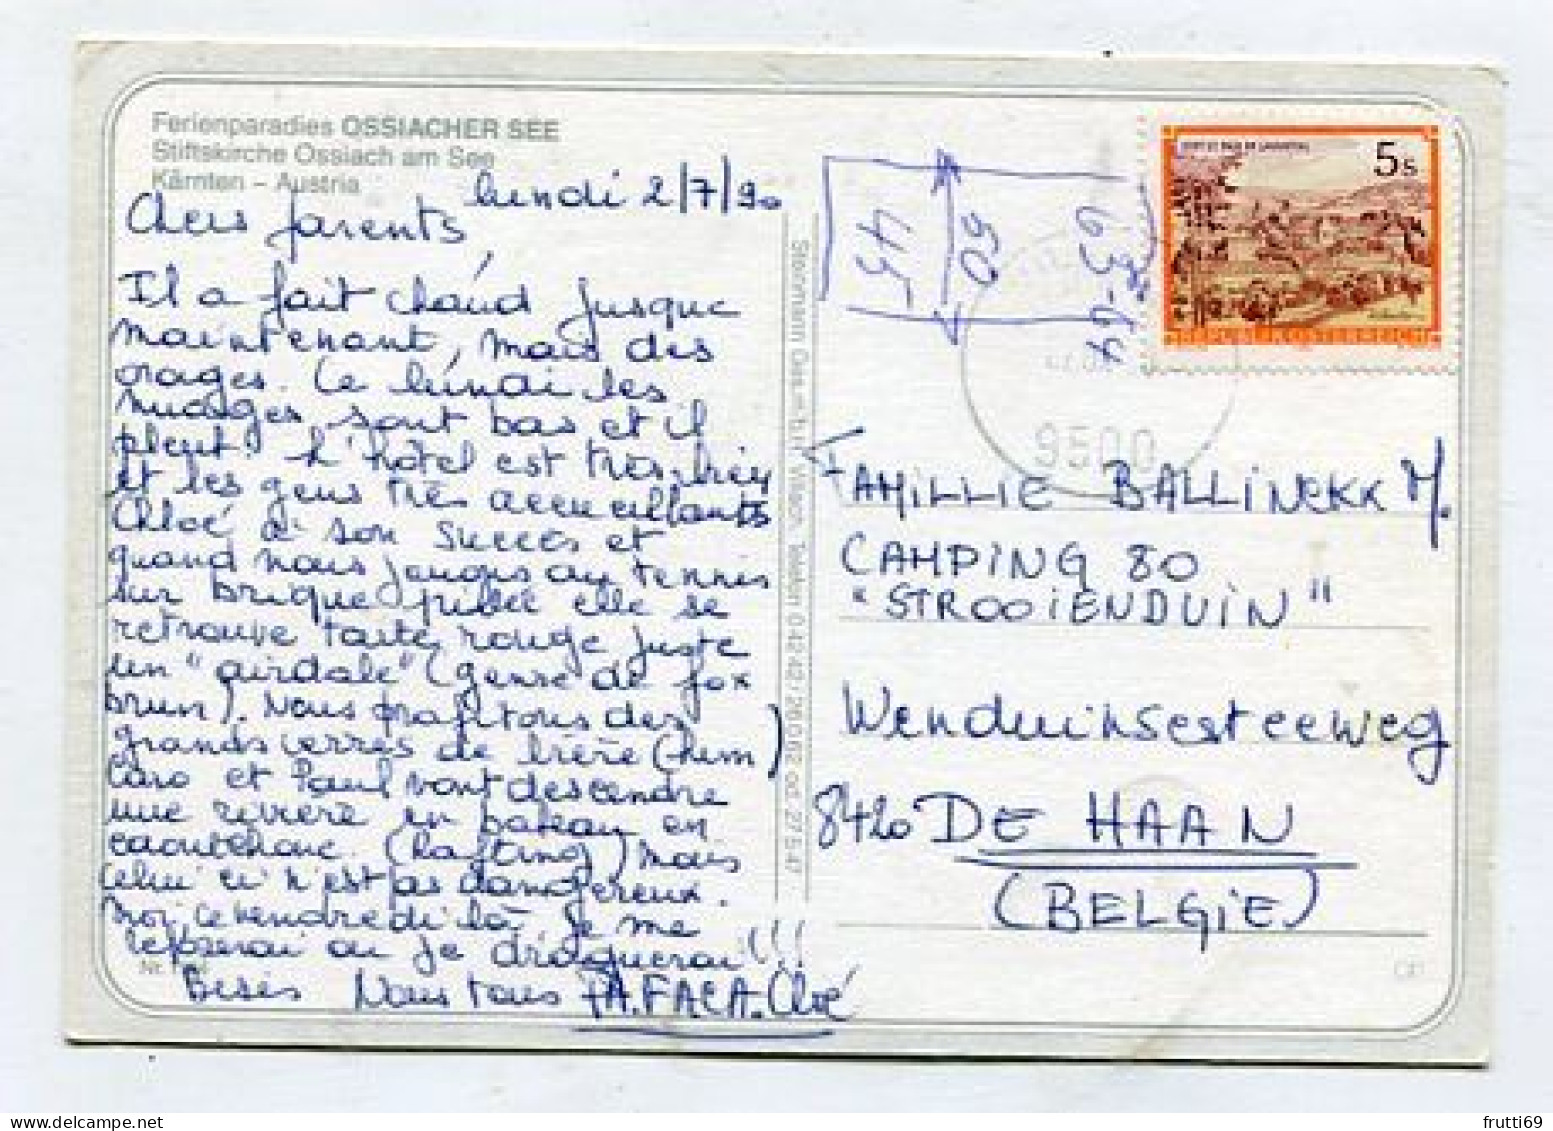 Ferienparadies OSSIACHER SEE
Stiftskirche Ossiach am See
Kärnten – Austria
lundi 2/7/90
Chers parents,
Il a fait chaud jusque
maintenant, mais des
orages. Ce lundi les
nuages sont bas et il
pleut. L'hôtel est très bien
et les gens très accueillants
Chloé a son succès et
quand nous jouons au tennis
sur brique pilée elle se
retrouve toute rouge juste
un "airdale" (genre de fox
brun). Nous profitons des
grands verres de bière (hum)
Caro et Paul vont descendre
une rivière en bateau en
caoutchouc. (Rafting) mais
celui ci n'est pas dangereux.
Moi ce vendredi là je me
reposerai ou je draguerai!!!
Bises Nous tous PA.FA.CA.Chloé
Nr.
5 S
REPUBLIK ÖSTERREICH
45
60
9500
FAMILLIE BALLINCKX M.
CAMPING 80
"STROOIENDUIN"
Wenduinsesteeweg
8420 DE HAAN
(BELGIE)
frutti69